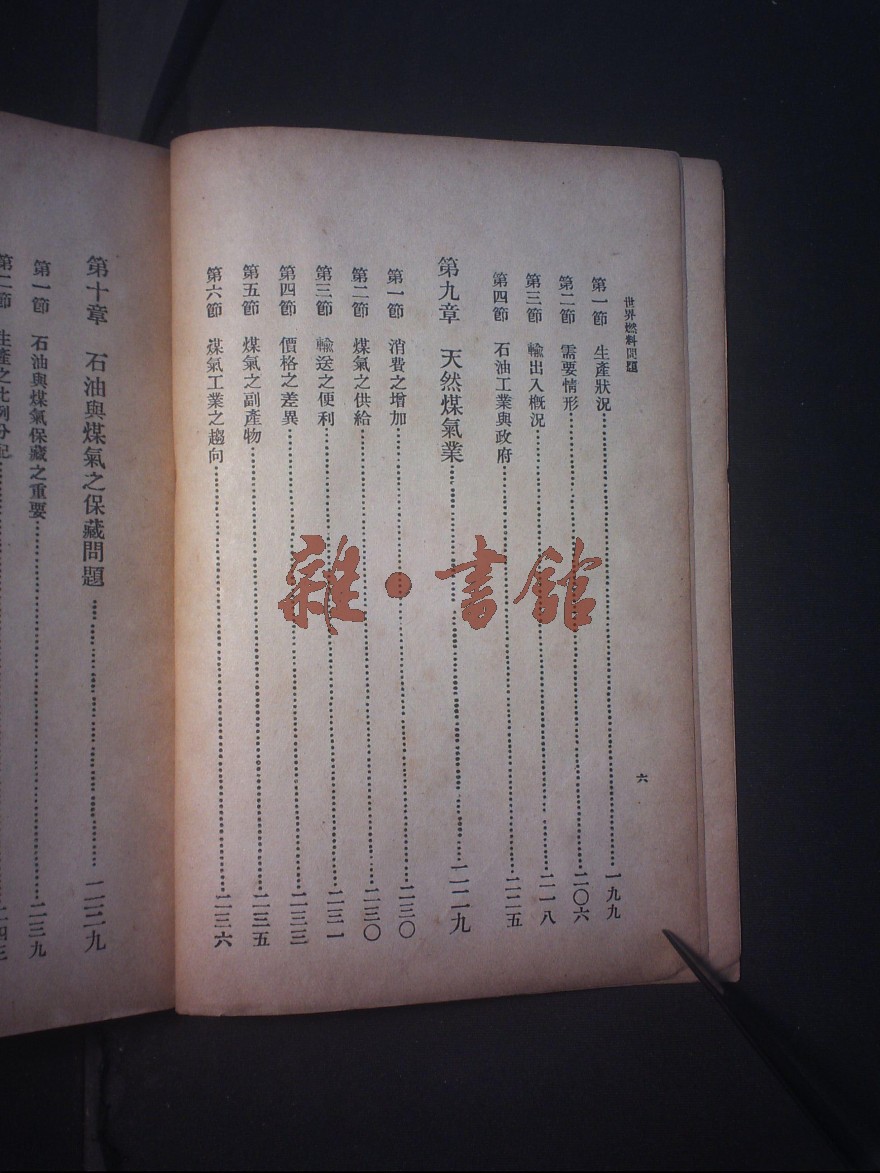 世界燃料問題
六
第一節 生產狀況 一九九
第二節 需要情形 二〇六
第三節 輸出入概況 二一八
第四節 石油工業與政府 二二五
第九章 天然煤氣業 二二九
第一節 消費之增加 二三〇
第二節 煤氣之供給 二三〇
第三節 輸送之便利 二三一
第四節 價格之差異 二三三
第五節 煤氣之副產物 二三五
第六節 煤氣工業之趨向 二三六
第十章 石油與煤氣之保藏問題 二三九
第一節 石油與煤氣保藏之重要 二三九
第二節 生產之比例分配
雜·書館